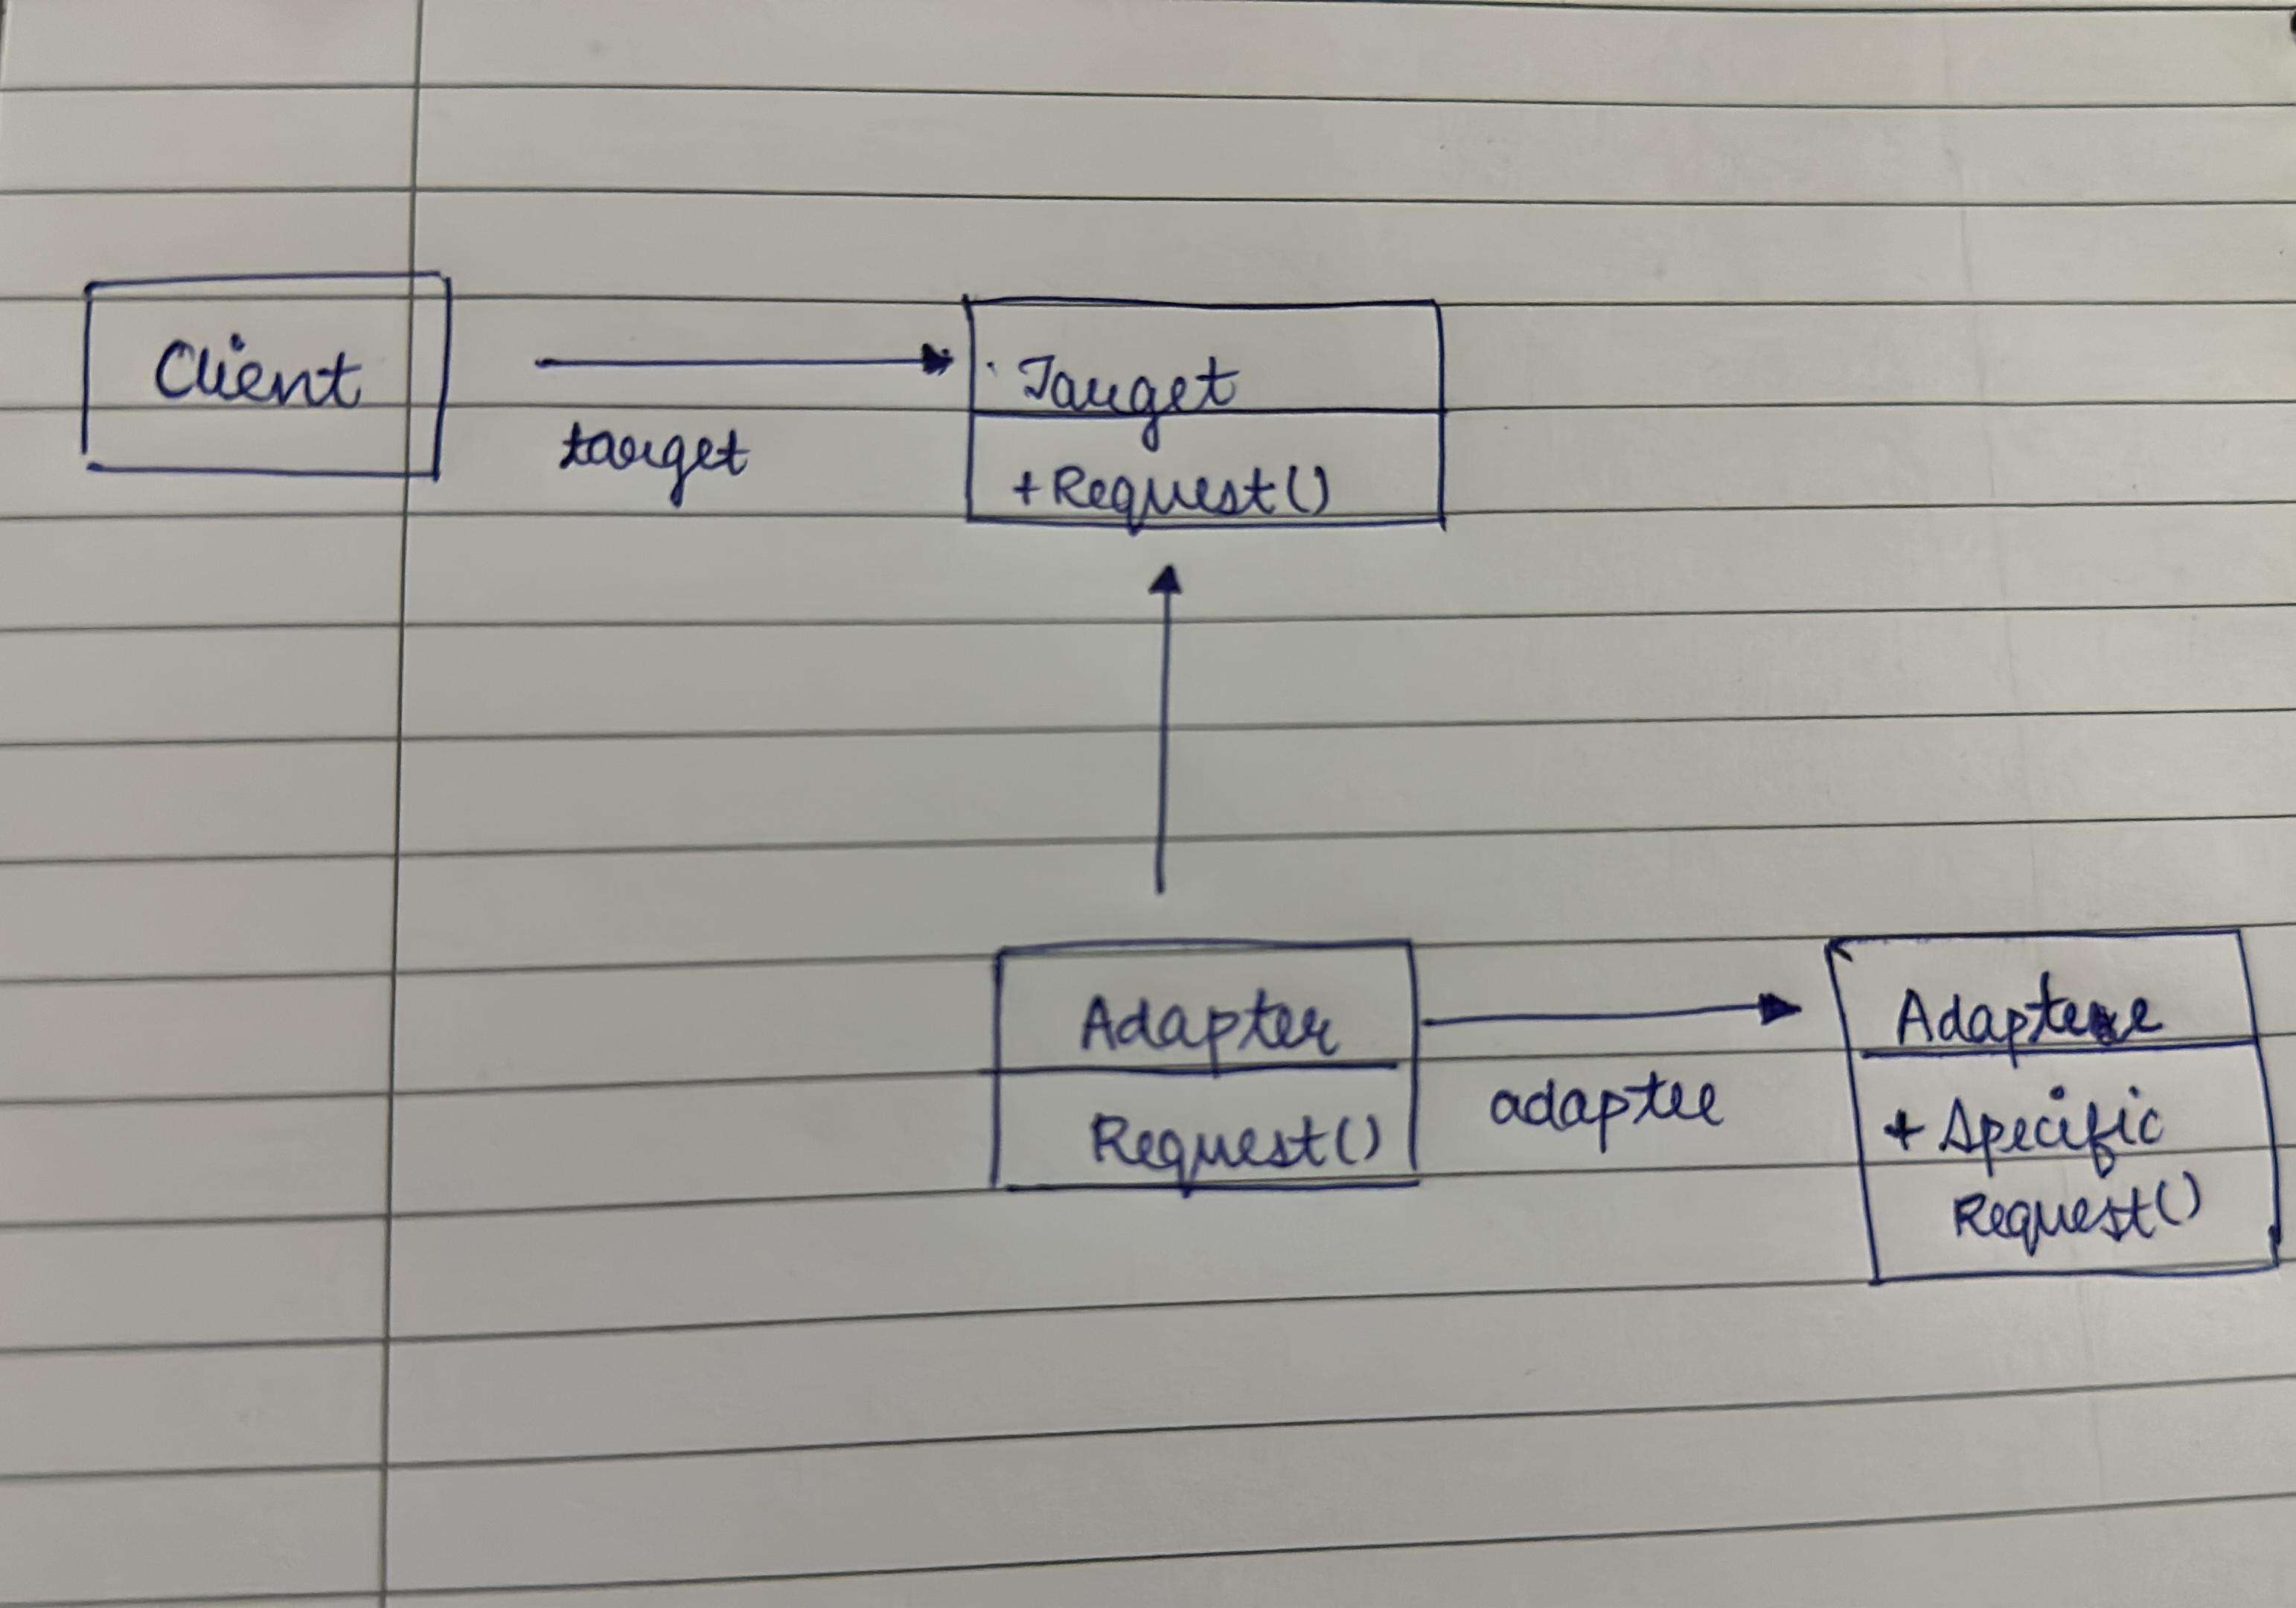 Client
target
Target
+Request()
Adapter
Request()
adaptee
Adaptee
+ Specific
Request()